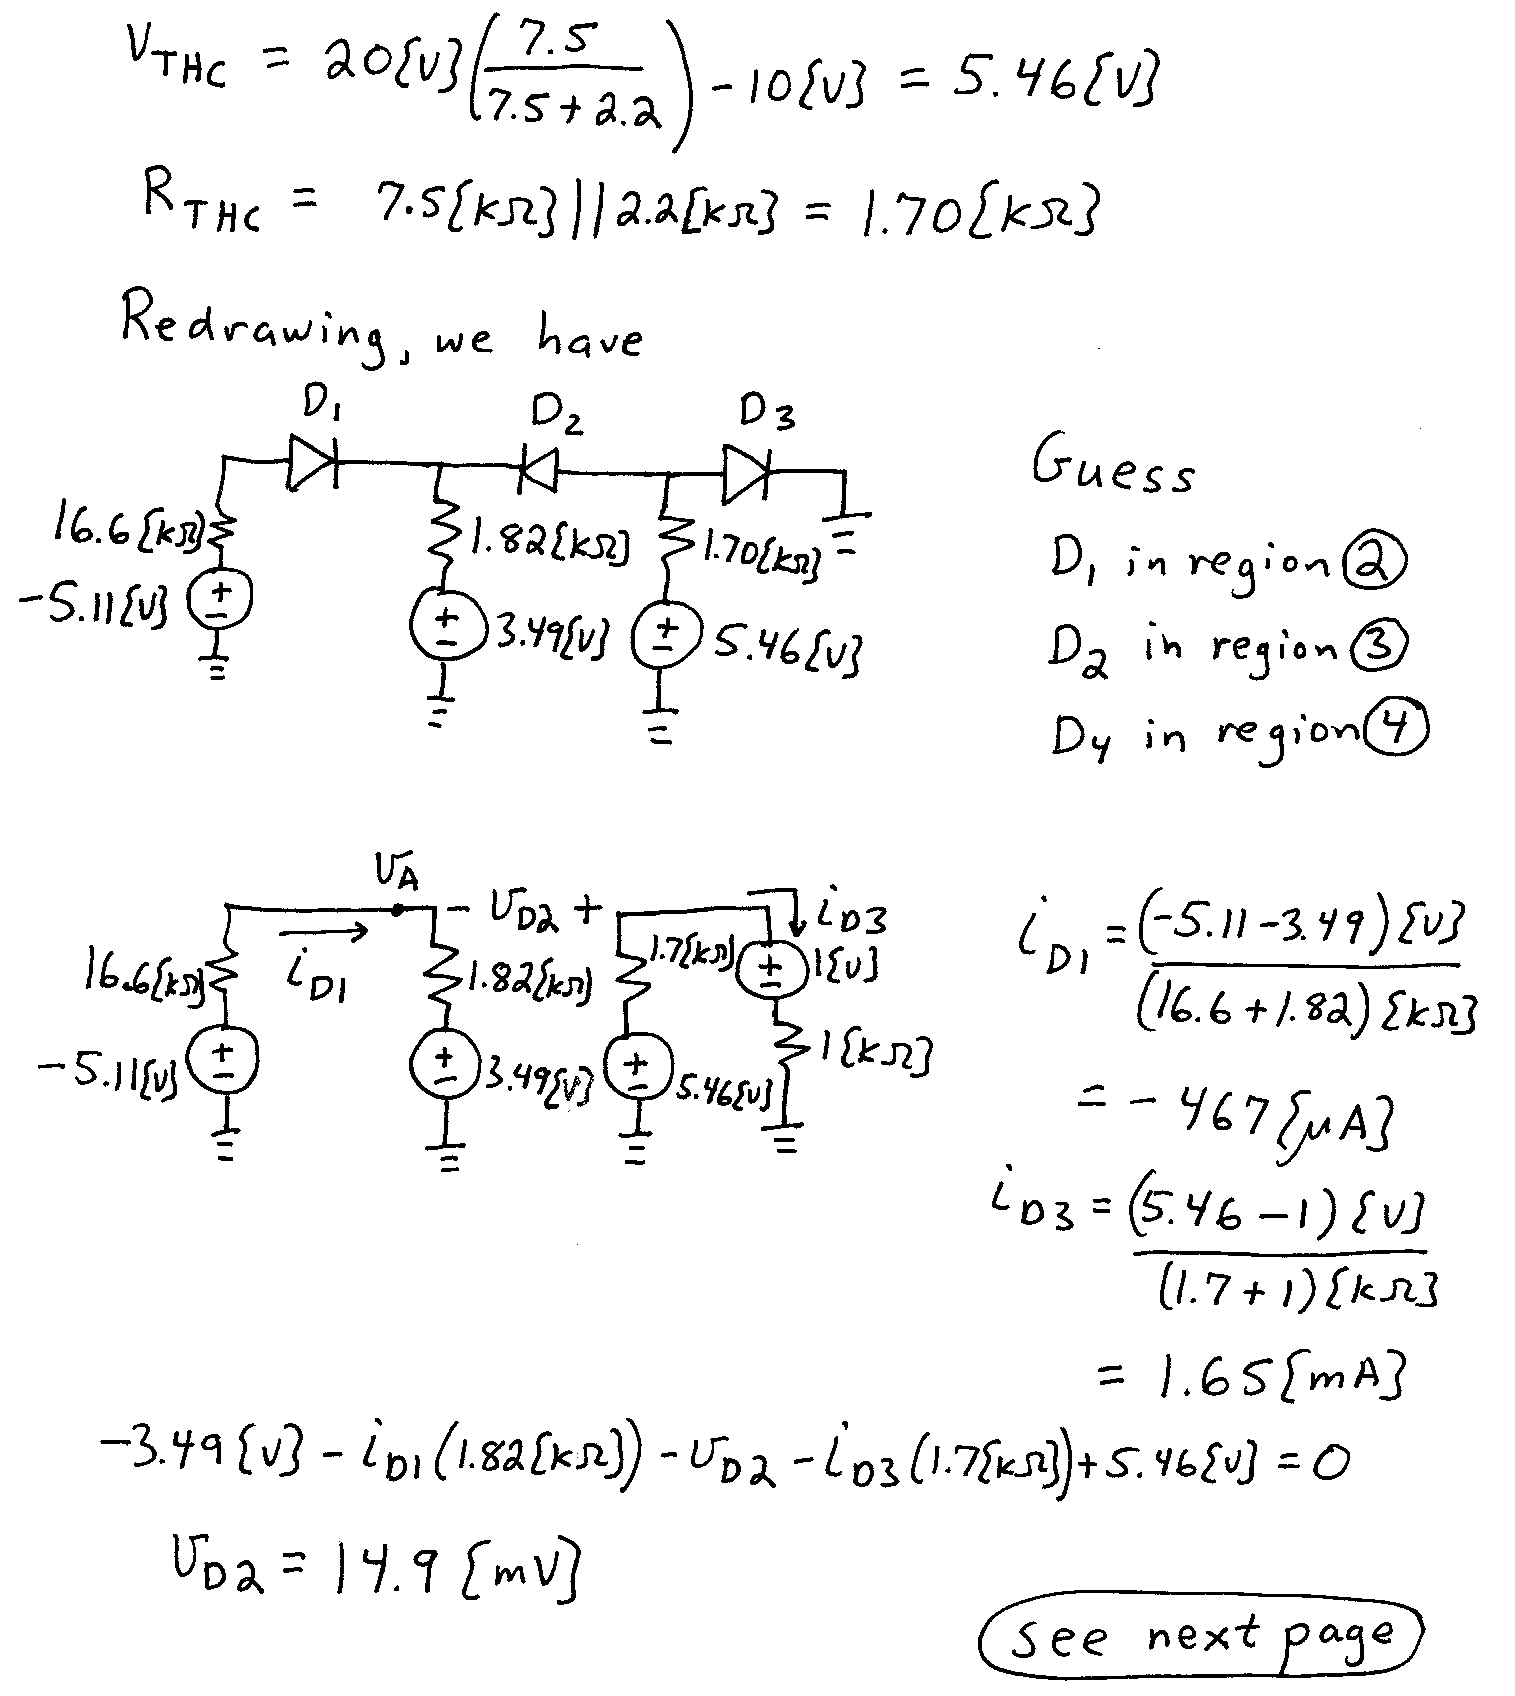 V_THC = 20{V}(7.5/(7.5+2.2)) - 10{V} = 5.46{V}
R_THC = 7.5{kΩ}||2.2{kΩ} = 1.70{kΩ}
Redrawing, we have
D1 D2 D3
16.6{kΩ} 1.82{kΩ} 1.70{kΩ}
-5.11{V} + - + - 3.49{V} + - 5.46{V}
Guess
D1 in region ②
D2 in region ③
D4 in region ④
vA - vD2 + iD3
16.6{kΩ} iD1 1.82{kΩ} 1.7{kΩ} + - 1{V}
-5.11{V} + - + - 3.49{V} + - 5.46{V} 1{kΩ}
iD1 = (-5.11-3.49){V}/(16.6+1.82){kΩ}
= -467{μA}
iD3 = (5.46-1){V}/(1.7+1){kΩ}
= 1.65{mA}
-3.49{V} - iD1(1.82{kΩ}) - vD2 - iD3(1.7{kΩ}) + 5.46{V} = 0
vD2 = 14.9{mV}
see next page